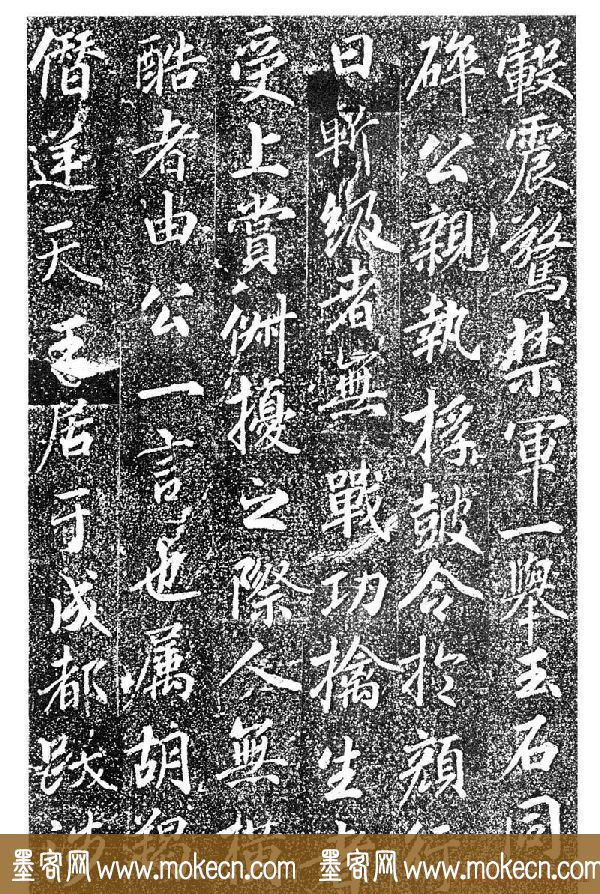 轂震驚禁軍一舉玉石同
碎公親執桴鼓令於顏行
曰斬級者無戰功擒生者
受上賞俶擾之際人無橫
酷者由公一言也属胡羯
僭逆天王居于成都跋
墨客网 www.mokecn.com 墨客网 www.mokecn.com